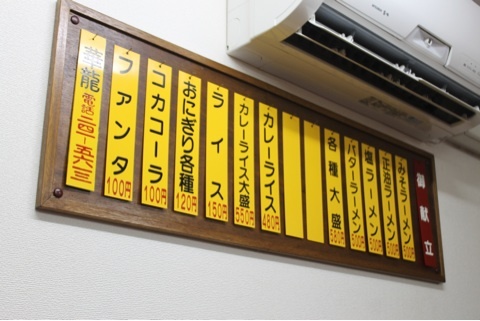 御献立
みそラーメン 500円
正油ラーメン 500円
塩ラーメン 500円
バターラーメン 500円
各種大盛 580円
カレーライス 480円
カレーライス大盛 550円
ライス 150円
おにぎり各種 120円
コカコーラ 100円
ファンタ 100円
華龍 電話二四-五六六三